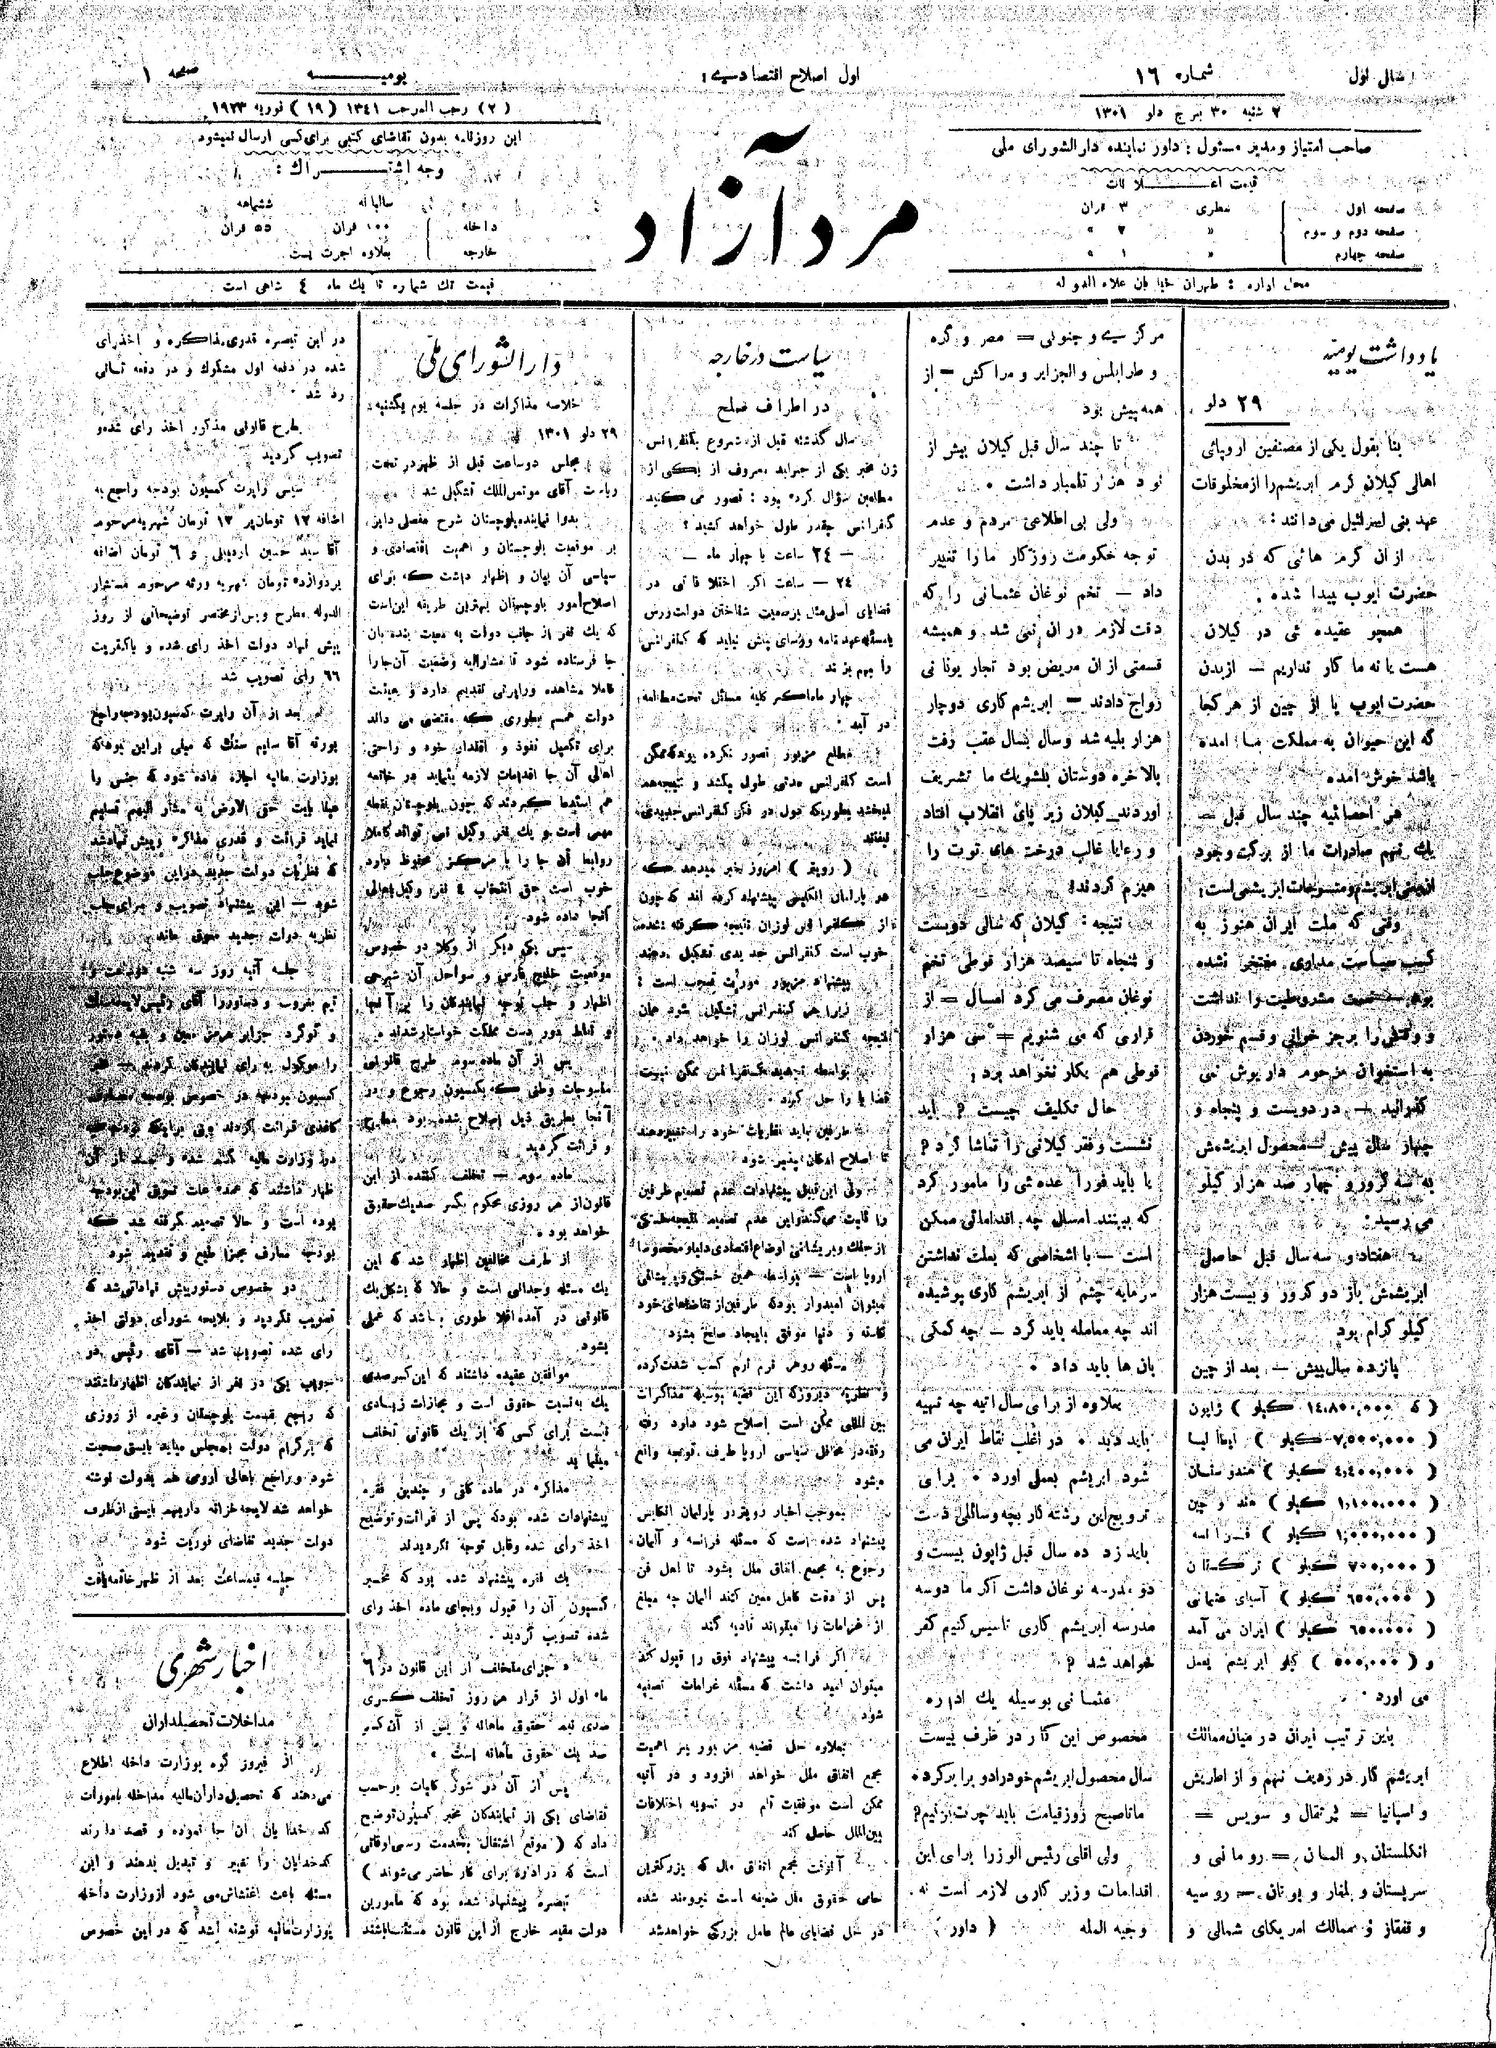 سال اول
شماره ۱۶
اول اصلاح اقتصادی:
یومیه
صفحه ۱
۲ شنبه ۳۰ برج دلو ۱۳۰۱
(۲) رجب المرجب ۱۳٤۱ (۱۹) فوریه ۱۹۲۳
صاحب امتیاز و مدیر مسئول: داور نماینده دارالشورای ملی
قیمت اعلانات
صفحه اول سطری ۳ قران
صفحه دوم و سوم » ۲ »
صفحه چهارم » ۱ »
محل اداره: طهران خیابان علاء الدوله
مرد آزاد
این روزنامه بدون تقاضای کتبی برای کسی ارسال نمیشود
وجه اشتراک:
سالیانه ششماهه
داخله ۱۰۰ قران ٥٥ قران
خارجه بعلاوه اجرت پست
قیمت تک شماره تا یک ماه ٤ شاهی است
یادداشت یومیه
۲۹ دلو
بنا بقول یکی از مصنفین اروپائی
اهالی گیلان کرم ابریشم را از مخلوقات
عهد بنی اسرائیل می دانند:
از ان کرم هائی که در بدن
حضرت ایوب پیدا شده.
همچو عقیده ئی در گیلان
هست یا نه ما کار نداریم — از بدن
حضرت ایوب یا از چین از هر کجا
که این حیوان به مملکت ما امده
باشد خوش امده
هر احصائیه چند سال قبل —
یک نهم صادرات ما از برکت وجود
وقتی که ملت ایران هنوز به
کسب سیاست مداری مفتخر نشده
بود — نعمت مشروطیت را نداشت
و وقتش را برجز خوانی و قسم خوردن
به استخوان مرحوم داریوش نمی
گذرانید — در دویست و پنجاه و
چهار سال پیش — محصول ابریشمش
به سه کرور و چهار صد هزار کیلو
می رسید:
هفتاد و سه سال قبل حاصل
ابریشمش باز دو کرور و بیست هزار
کیلو گرام بود
پانزده سال پیش — بعد از چین
(که ۱٤,۸۰۰,۰۰۰ کیلو) ژاپون
(۷,۵۰۰,۰۰۰ کیلو) ایطالیا
(٤,٤۰۰,۰۰۰ کیلو) هندوستان
(۱,۱۰۰,۰۰۰ کیلو) هند و چین
(۱,۰۰۰,۰۰۰ کیلو) فرانسه
(۷۰۰,۰۰۰ کیلو) ترکستان
(٦٥۰,۰۰۰ کیلو) آسیای عثمانی
(٦٥۰,۰۰۰ کیلو) ایران می آمد
و (۵۰۰,۰۰۰) کیلو ابریشم بعمل
می اورد.
باین ترتیب ایران در میان ممالک
ابریشم کار در ردیف نهم و از اطریش
و اسپانیا = پرتقال و سویس =
انگلستان و المان = رومانی و
صربستان و بلغار و یونان = روسیه
و قفقاز و ممالک امریکای شمالی و
مرکزی و جنوبی = مصر و کره
و طرابلس و الجزایر و مراکش — از
همه پیش بود
تا چند سال قبل گیلان بیش از
نود هزار تلمبار داشت.
ولی بی اطلاعی مردم و عدم
توجه حکومت روزگار ما را تغییر
داد — تخم نوغان عثمانی را که
دقت لازم در ان نمی شد و همیشه
قسمتی از ان مریض بود تجار یونانی
رواج دادند — ابریشم کاری دوچار
هزار بلیه شد و سال بسال عقب رفت
بالاخره دوستان بلشویک ما تشریف
اوردند. گیلان زیر پای انقلاب افتاد
و رعایا غالب درخت های توت را
هیزم کردند!
نتیجه: گیلان که سالی دویست
و پنجاه تا سیصد هزار قوطی تخم
نوغان مصرف می کرد امسال — از
قراری که می شنویم = سی هزار
قوطی هم بکار نخواهد برد!
حال تکلیف چیست؟ باید
نشست و فقر گیلانی را تماشا کرد؟
یا باید فورا عده ئی را مامور کرد
که ببینند امسال چه اقداماتی ممکن
است — با اشخاصی که بعلت نداشتن
سرمایه چشم از ابریشم کاری پوشیده
اند چه معامله باید کرد — چه کمکی
بان ها باید داد.
بعلاوه از برای سال اتیه چه تهیه
باید دید. در اغلب نقاط ایران می
شود ابریشم بعمل اورد. برای
ترویج این رشته کار بچه وسائلی دست
باید زد ده سال قبل ژاپون بیست و
دو مدرسه نوغان داشت اگر ما دو سه
مدرسه ابریشم کاری تاسیس کنیم کفر
خواهد شد؟
عثمانی بوسیله یک اداره
مخصوص این کار در ظرف بیست
سال محصول ابریشم خود را دو برابر کرد.
ما تا صبح روز قیامت باید چرت بزنیم؟
ولی اقلی رئیس الوزرا برای این
اقدامات وزیر کاری لازم است نه.
وجیه المله (داور)
سیاست در خارجه
در اطراف صلح
سال گذشته قبل از شروع بکنفرانس
ژن مخبر یکی از جراید معروف از یکی از
مطلعین سؤال کرده بود: تصور می کنید
کنفرانس چقدر طول خواهد کشید؟
— ۲٤ ساعت یا چهار ماه —
۲٤ — ساعت اگر اختلافاتی در
قضایای اصلی مثل برسمیت شناختن دولت روس
یا مسئله عهدنامه ورسای پیش نیاید که کنفرانس
را بهم بزند
چهار ماه اگر کلیه مسائل تحت مطالعه
در آید.
مطلع مزبور تصور نکرده بود که ممکن
است کنفرانس مدتی طول بکشد و نتیجه هم
نبخشد بطوریکه دول در فکر کنفرانس جدیدی
بیفتند
(رویتر) امروز بخبر میدهد که
در پارلمان انگلیس پیشنهاد کرده اند که چون
از کنفرانس لوزان نتیجه گرفته نشده
خوب است کنفرانس جدیدی تشکیل دهند
پیشنهاد مزبور مورث تعجب است:
زیرا هر کنفرانس تشکیل شود همان
نتیجه کنفرانس لوزان را خواهد داد.
بواسطه تجدید کنفرانس ممکن نیست
قضایا را حل کرد.
طرفین باید نظریات خود را تغییر دهند
تا اصلاح امکان پذیر شود
ولی این قبیل پیشنهادات عدم تصمیم طرفین
را ثابت می کند و این عدم تصمیم نتیجه خستگی
از جنگ و پریشانی اوضاع اقتصادی دنیا و مخصوصا
اروپا است — بواسطه همین خستگی و پریشانی
میتوان امیدوار بود که طرفین از تقاضاهای خود
کاسته و دنیا موفق بایجاد صلح بشود
مسئله روهر فرم ارم کسب شدت کرده
و نظریه دیروزکه این قضیه بوسیله مذاکرات
بین المللی ممکن است اصلاح شود دارد رفته
رفته در محافل سیاسی اروپا طرف توجه واقع
میشود
بموجب اخبار رویتر در پارلمان انگلیس
پیشنهاد شده است که مسئله فرانسه و آلمان
رجوع به مجمع اتفاق ملل بشود تا اهل فن
پس از دقت کامل معین کنند آلمان چه مبلغ
از غرامات را میتواند تادیه کند
اگر فرانسه پیشنهاد فوق را قبول کند
میتوان امید داشت که مسئله غرامات تصفیه
شود
بعلاوه حل قضیه مزبور بر اهمیت
مجمع اتفاق ملل خواهد افزود و در آتیه
ممکن است موفقیات تام در تسویه اختلافات
بین الملل حاصل کند
آنوقت مجمع اتفاق ملل که بزرگترین
حامی حقوق ملل ضعیفه است نیرومند شده
در حل قضایای عالم عامل بزرگی خواهد شد
دارالشورای ملی
خلاصه مذاکرات در جلسه یوم یکشنبه
۲۹ دلو ۱۳۰۱
مجلس دو ساعت قبل از ظهر در تحت
ریاست آقای موتمن الملک تشکیل شد
بدوا نماینده بلوچستان شرح مفصلی دایر
بر موقعیت بلوچستان و اهمیت اقتصادی و
سیاسی آن بیان و اظهار داشت که برای
اصلاح امور بلوچستان بهترین طریقه این است
که یک نفر از جانب دولت به معیت بنده بان
جا فرستاده شود تا مشارالیه وضعیت آن جا را
کاملا مشاهده و راپرتی تقدیم دارد و هیئت
دولت هم بطوری که مقتضی می داند
برای تکمیل نفوذ و اقتدار خود و راحتی
اهالی آن جا اقدامات لازمه بنماید در خاتمه
هم استدعا میکردند که چون بلوچستان نقطه
مهمی است و یک نفر وکیل نمی تواند کاملا
روابط آن جا را با مرکز محفوظ دارد
خوب است حق انتخاب ٤ نفر وکیل باهالی
آنجا داده شود.
پس یکی دیگر از وکلا در خصوص
موقعیت خلیج فارس و سواحل آن شرحی
اظهار و جلب توجه نمایندگان را بر آنجا
و نقاط دور دست مملکت خواستار شدند.
پس از آن ماده سوم طرح قانونی
منسوجات وطنی که بکمیسیون رجوع و در
آنجا بطریق ذیل اصلاح شده بود مطرح
و قرائت گردید
ماده سوم — تخلف کننده از این
قانون از هر روزی محکوم بکسر صدیک حقوق
خواهد بود.
از طرف مخالفین اظهار شد که این
یک مسئله وجدانی است و حالا که بشکل یک
قانونی در آمده اقلا طوری باشد که عملی
بشود
موافقین عقیده داشتند که این کسر صدی
یک به نسبت حقوق است و مجازات زیادی
نیست برای کسی که از یک قانونی تخلف
مینماید
مذاکره در ماده کافی و چندین فقره
پیشنهادات شده بود که پس از قرائت و توضیح
اخذ رأی شده و قابل توجه نگردیدند
یک فقره پیشنهاد شده بود که مخبر
کمسیون آن را قبول و بجای ماده اخذ رای
شده تصویب گردید.
« جزای متخلف از این قانون در ٦
ماه اول از قرار هر روز تخلف کسری
صدی نیم حقوق ماهانه و پس از آن کسر
صد یک حقوق ماهانه است »
پس از آن در شور کلیات بر حسب
تقاضای یکی از نمایندگان مخبر کمسیون توضیح
داد که (موقع اشتغال بخدمت رسمی اوقاتی
است که در اداره برای کار حاضر می شوند)
تبصره پیشنهاد شده بود که مامورین
دولت مقیم خارج از این قانون مستثنا باشند
در این تبصره قدری مذاکره و اخذ رای
شده در دفعه اول مشکوک و در دفعه ثانی
رد شد.
طرح قانونی مذکور اخذ رای شده و
تصویب گردید
سپس راپرت کمسیون بودجه راجع به
اضافه ۱۲ تومان بر ۱۳ تومان شهریه مرحوم
آقا سید حسین اردبیلی و ٦ تومان اضافه
بر دوازده تومان شهریه ورثه مرحوم مستشار
الدوله مطرح و پس از مختصر توضیحاتی از روز
پیش نهاد دولت اخذ رای شده و باکثریت
٦٦ رای تصویب شد
بعد از آن راپرت کمسیون بودجه راجع
بورثه آقا سلیم سنگ که مبنی بر این بود که
بوزارت مالیه اجازه داده شود که جنس را
عینا بابت حق الارض به مشار الیهم تسلیم
نماید قرائت و قدری مذاکره و پیش نهاد شد
که نظریات دولت جدید در این موضوع جلب
شود — این پیشنهاد تصویب و برای جلب
نظریه دولت جدید معوق ماند.
جلسه آتیه روز سه شنبه دو ساعت و
نیم بغروب و دستور را آقای رئیس لایحه نمک
و گوگرد جزایر هرمز معین و بقیه دستور
را موکول به رای نمایندگان کردند —
در وزارت مالیه
ظهار داشتند که عمده علت تعویق این بودجه
بوده است و حالا تصمیم گرفته شد که
بودجه معارف مجزا طبع و تقدیم شود
در خصوص دستور پیش نهاداتی شد که
تصویب نگردید و بلایحه شورای دولتی اخذ
رای شده تصویب شد — آقای رئیس در
جواب یکی دو نفر از نمایندگان اظهار داشتند
که راجع بقسمت بلوچستان و غیره از روزی
که پرگرام دولت بمجلس میاید بایستی صحبت
شود و راجع باهالی ارومی هم بدولت نوشته
خواهد شد لایحه خزانه داری هم بایستی از طرف
دولت جدید تقاضای فوریت شود
جلسه نیمساعت بعد از ظهر خاتمه یافت
اخبار شهری
مداخلات تحصیلداران
از فیروز کوه بوزارت داخله اطلاع
می دهند که تحصیل داران مالیه مداخله بامورات
کدخدایان آن جا نموده و قصد دارند
کدخدایان را تغییر و تبدیل بدهند و این
مسئله باعث اغتشاش می شود از وزارت داخله
بوزارت مالیه نوشته شد که در این خصوص